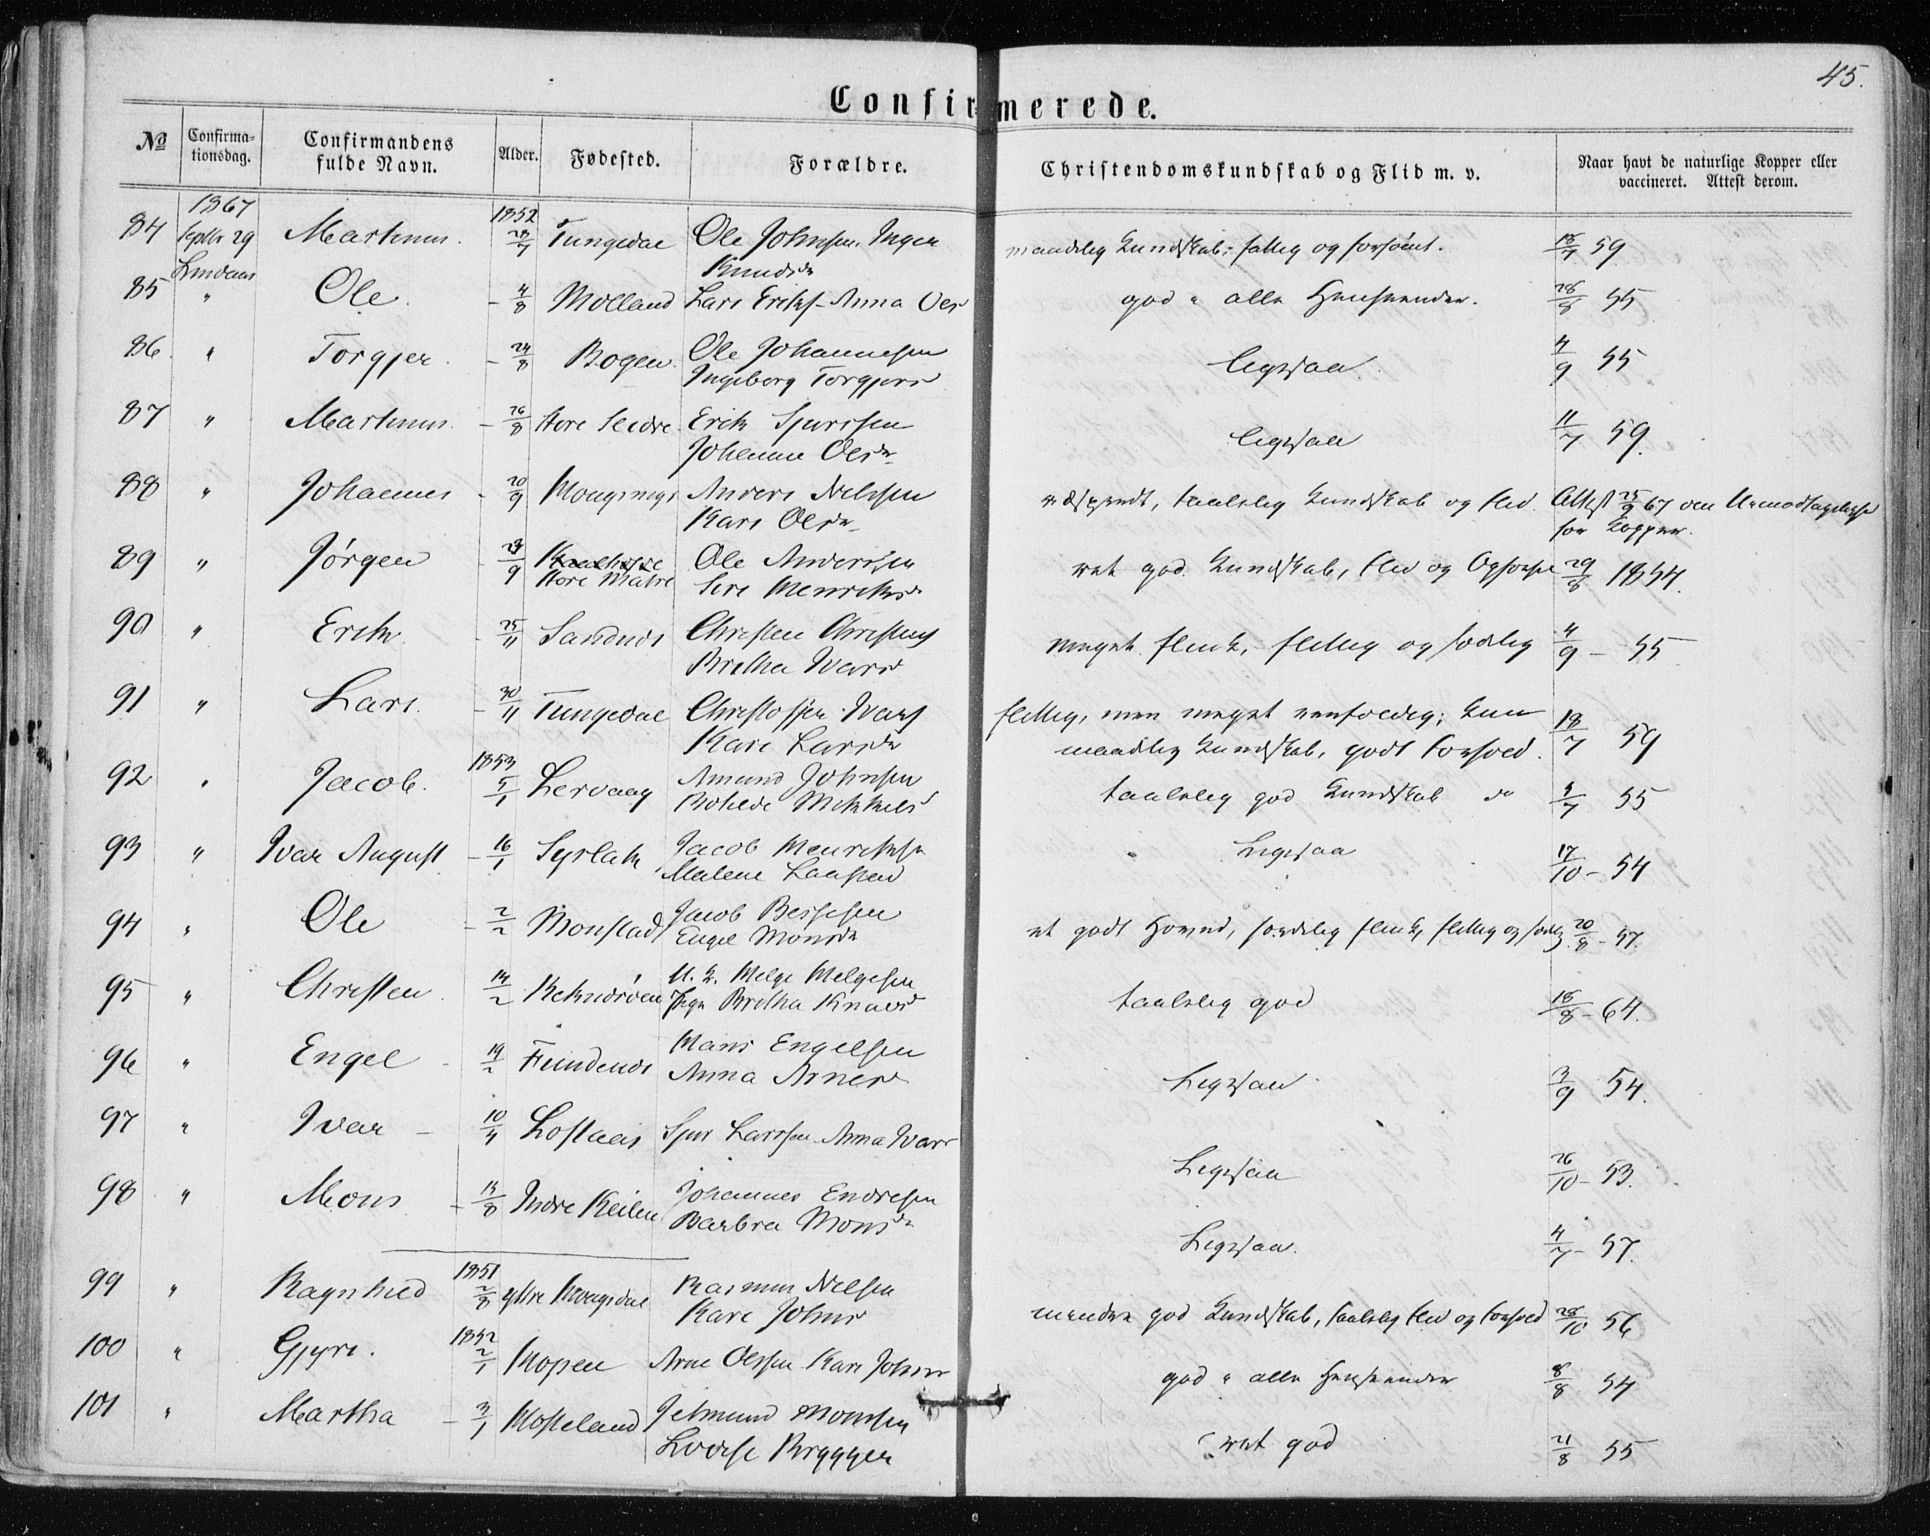 45.
Confirmerede.
№ Confirma-tionsdag. Confirmandens fulde Navn. Alder. Fødested. Forældre. Christendomskundskab og Flid m. v. Naar havt de naturlige Kopper eller vaccineret. Attest derom.
84 1867 Septbr 29 Lindaas Martinus. 1852 28/7 Tungedal Ole Johnsen, Inger Knudsdr maadelig Kundskab; fattig og forsømt. 18/7 59
85 " Ole. – 4/8 Molland Lars Eriks. Anna Olsd god i alle Henseender. 28/8 55
86. " Torgjer. – 24/8 Bogen Ole Johannesen Ingeborg Torgjersd ligesaa 4/9 55
87 " Martinus. – 26/8 Store Seidre Erik Sjursen Johanne Olsdr ligesaa 11/7 59.
88 " Johannes – 20/9 Anders Nilssen Kari Olsdr taalelig Kundskab og Flid. Attest 25/9 67 om Uimodtagelighed for Kopper.
89 " Jørgen – 23/9 Store Matre Ole Andersen Siri Henriksdr ret god Kundskab, Flid og Opførsel 29/8 1854.
90 " Erik – 25/11 Sandnes Christen Christens Britha Ivarsd meget flink, flittig og sædelig 4/9 – 55
91 " Lars. – 30/11 Tungedal Christoffer Ivars Kari Larsdr flittig, men meget eenfoldig; kun maadelig Kundskab, godt Forhold. 18/7 59
92 " Jacob. 1853 5/1 Lervaag Amund Johnsen Bothilde Mikkelsd taalelig god Kundskab do 5/7 55
93 " Ivar August – 16/1 Syslak Jacob Henriksen Malene Laastad Ligesaa 17/10 – 54
94 " Ole – 2/2 Monstad Jacob Bessesen Engel Monsdr et godt Hoved, særdeles flink, flittig og sædelig 20/8 – 57.
95 " Christen 14/2 U. K. Helge Helgesen Pige Britha Knudsd taalelig god 18/8 – 64.
96 " Engel – 19/2 Fundenes Hans Engelsen Anna Arnesd Ligesaa 3/9 54.
97 " Ivar – 10/4 Loftaas Sjur Larssen. Anna Ivarsd Ligesaa 26/10 – 53.
98 " Mons – 13/8 Indre Keilen Johannes Endresen Barbra Monsdr Ligesaa. 4/7 – 57.
99 " Ragnhild 1851 2/8 ytre Hougsdal Rasmus Nilsen Kari Johnsd mindre god Kundskab, taalelig Flid og Forhold 28/10 56
100 " Gjyri. 1852 2/1 Kopen Arne Olssen Kari Johnsd god i alle Henseender 8/8 54
101 " Martha – 3/1 Hopeland Jetmund Monsen Lovise Brygger ret god 21/8 55